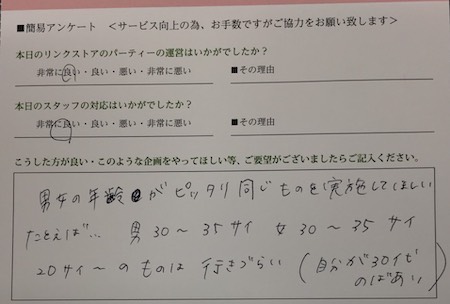 ■簡易アンケート ＜サービス向上の為、お手数ですがご協力をお願い致します＞
本日のリンクストアのパーティーの運営はいかがでしたか？
非常に良い・良い・悪い・非常に悪い ■その理由
本日のスタッフの対応はいかがでしたか？
非常に良い・良い・悪い・非常に悪い ■その理由
こうした方が良い・このような企画をやってほしい等、ご要望がございましたらご記入ください。
男女の年齢がピッタリ同じものを実施してほしい
たとえば… 男30～35サイ 女30～35サイ
20サイ～のものは行きづらい（自分が30代
のばあい）